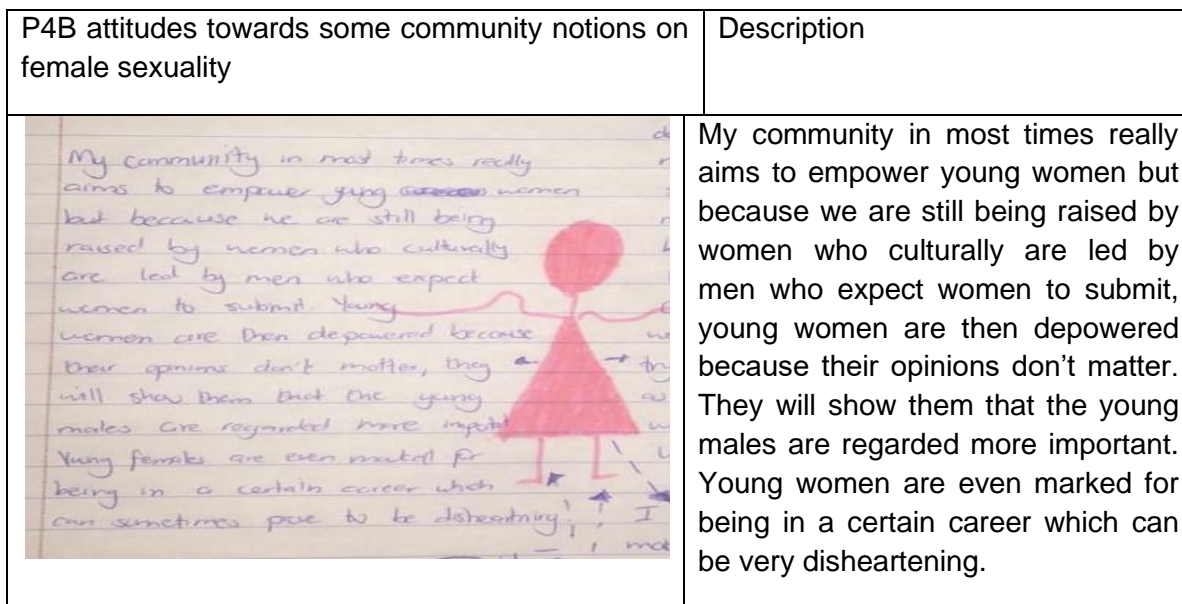 P4B attitudes towards some community notions on
female sexuality
Description
My community in most times really
aims to empower yung women
but because we are still being
raised by women who culturally
are led by men who expect
women to submit. Young
women are then depowered because
their opinions don't matter, they
will show them that the yung
males are regarded more
Yung females are even for
being in a certain career which
can sometimes to be
I
My community in most times really
aims to empower young women but
because we are still being raised by
women who culturally are led by
men who expect women to submit,
young women are then depowered
because their opinions don't matter.
They will show them that the young
males are regarded more important.
Young women are even marked for
being in a certain career which can
be very disheartening.